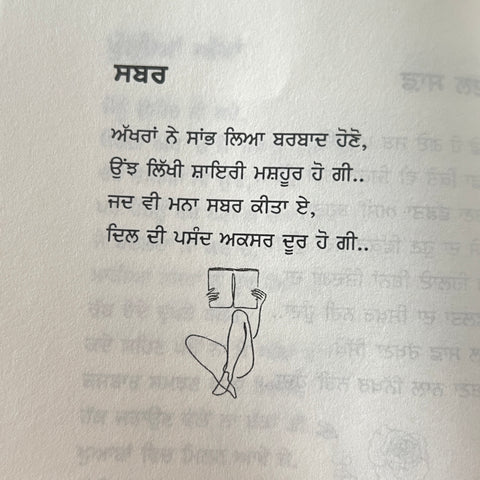 ਸਬਰ
ਅੱਖਰਾਂ ਨੇ ਸਾਂਭ ਲਿਆ ਬਰਬਾਦ ਹੋਣੋ,
ਉਂਝ ਲਿੱਖੀ ਸ਼ਾਇਰੀ ਮਸ਼ਹੂਰ ਹੋ ਗੀ..
ਜਦ ਵੀ ਮਨਾ ਸਬਰ ਕੀਤਾ ਏ,
ਦਿਲ ਦੀ ਪਸੰਦ ਅਕਸਰ ਦੂਰ ਹੋ ਗੀ..